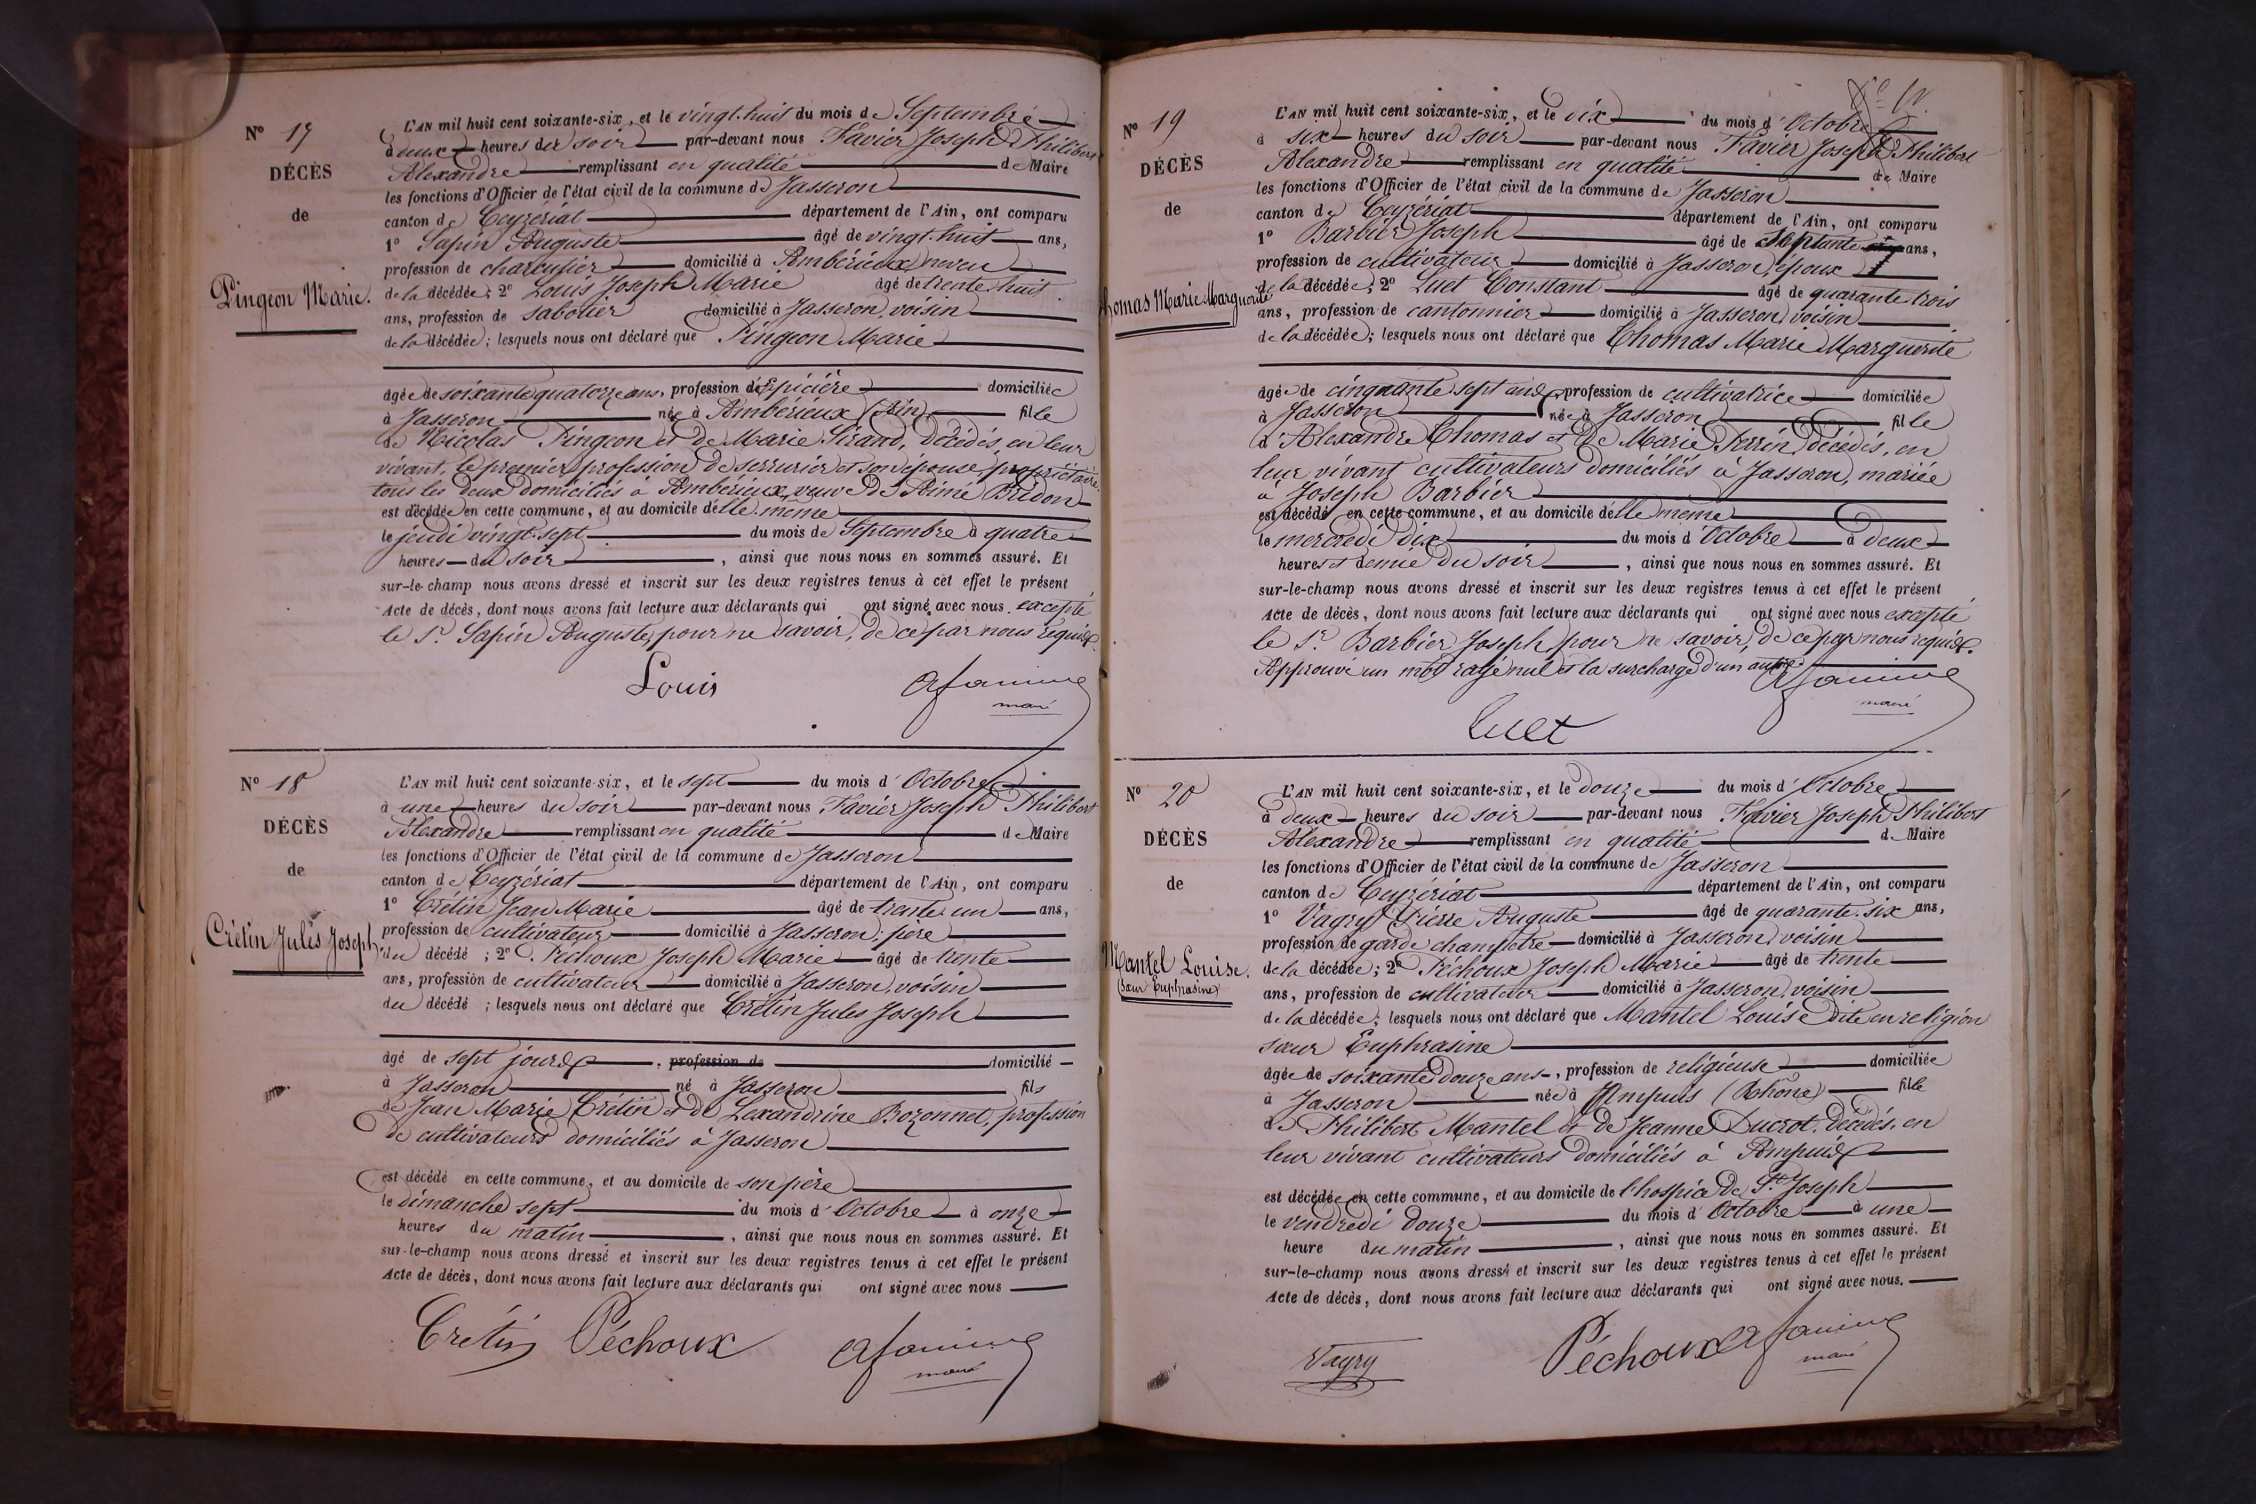 Nº 17
DÉCÈS
de
Pingeon Marie.
L'AN mil huit cent soixante-six, et le vingt-huit du mois de Septembre
à deux heures du soir par-devant nous Favier Joseph Philibert
Alexandre remplissant en qualité de Maire
les fonctions d'Officier de l'état civil de la commune de Jasseron
canton de Ceyzériat département de l'Ain, ont comparu
1º Sapin Auguste âgé de vingt-huit ans,
profession de charcutier domicilié à Ambérieux neveu
de la décédée; 2º Louis Joseph Marie âgé de trente-huit
ans, profession de sabotier domicilié à Jasseron, voisin
de la décédée; lesquels nous ont déclaré que Pingeon Marie
âgée de soixante quatorze ans, profession d'Epicière domiciliée
à Jasseron née à Ambérieux (Ain) fille
de Nicolas Pingeon et de Marie Sirand, décédés, en leur
vivant, le premier profession de serrurier et son épouse, propriétaire
tous les deux domiciliés à Ambérieux, veuve de Aimé Bridon
est décédée en cette commune, et au domicile d'elle même
le jeudi vingt-sept du mois de Septembre à quatre
heures du soir, ainsi que nous nous en sommes assuré. Et
sur-le-champ nous avons dressé et inscrit sur les deux registres tenus à cet effet le présent
Acte de décès, dont nous avons fait lecture aux déclarants qui ont signé avec nous excepté
le Sr. Sapin Auguste, pour ne savoir, de ce par nous requis.
Louis
maire
Nº 18
DÉCÈS
de
Crétin Jules Joseph.
L'AN mil huit cent soixante-six, et le sept du mois d'Octobre
à une heures du soir par-devant nous Favier Joseph Philibert
Alexandre remplissant en qualité de Maire
les fonctions d'Officier de l'état civil de la commune de Jasseron
canton de Ceyzériat département de l'Ain, ont comparu
1º Crétin Jean Marie âgé de trente-un ans,
profession de cultivateur domicilié à Jasseron; père
du décédé; 2º Péchoux Joseph Marie âgé de trente
ans, profession de cultivateur domicilié à Jasseron, voisin
du décédé; lesquels nous ont déclaré que Crétin Jules Joseph
âgé de sept jours, profession de domicilié
à Jasseron né à Jasseron fils
de Jean Marie Crétin et de Lexandrine Bozonnet, profession
de cultivateurs domiciliés à Jasseron
est décédé en cette commune, et au domicile de son père
le dimanche sept du mois d'Octobre à onze
heures du matin, ainsi que nous nous en sommes assuré. Et
sur-le-champ nous avons dressé et inscrit sur les deux registres tenus à cet effet le présent
Acte de décès, dont nous avons fait lecture aux déclarants qui ont signé avec nous
Cretin Péchoux
maire
Nº 19
DÉCÈS
de
Thomas Marie Marguerite
L'AN mil huit cent soixante-six, et le dix du mois d'Octobre
à six heures du soir par-devant nous Favier Joseph Philibert
Alexandre remplissant en qualité de Maire
les fonctions d'Officier de l'état civil de la commune de Jasseron
canton de Ceyzériat département de l'Ain, ont comparu
1º Barbier Joseph âgé de septante ans,
profession de cultivateur domicilié à Jasseron, époux
de la décédée; 2º Luet Constant âgé de quarante trois
ans, profession de cantonnier domicilié à Jasseron, voisin
de la décédée; lesquels nous ont déclaré que Thomas Marie Marguerite
âgée de cinquante sept ans profession de cultivatrice domiciliée
à Jasseron née à Jasseron fille
d'Alexandre Thomas et de Marie Perrin, décédés, en
leur vivant cultivateurs domiciliés à Jasseron, mariée
à Joseph Barbier
est décédé en cette commune, et au domicile d'elle même
le mercredi dix du mois d'Octobre à deux
heures et demie du soir, ainsi que nous nous en sommes assuré. Et
sur-le-champ nous avons dressé et inscrit sur les deux registres tenus à cet effet le présent
Acte de décès, dont nous avons fait lecture aux déclarants qui ont signé avec nous excepté
le Sr. Barbier Joseph, pour ne savoir, de ce par nous requis.
Approuvé un mot rayé nul et la surcharge d'un autre.
maire
Luet
Nº 20
DÉCÈS
de
Mantel Louise.
(Sœur Euphrasine)
L'AN mil huit cent soixante-six, et le douze du mois d'Octobre
à deux heures du soir par-devant nous Favier Joseph Philibert
Alexandre remplissant en qualité de Maire
les fonctions d'Officier de l'état civil de la commune de Jasseron
canton de Ceyzériat département de l'Ain, ont comparu
1º Vagry Pierre Auguste âgé de quarante-six ans,
profession de garde champêtre domicilié à Jasseron, voisin
de la décédée; 2º Péchoux Joseph Marie âgé de trente
ans, profession de cultivateur domicilié à Jasseron, voisin
de la décédée; lesquels nous ont déclaré que Mantel Louise dite en religion
sœur Euphrasine
âgée de soixante douze ans, profession de religieuse domiciliée
à Jasseron née à Ampuis (Rhône) fille
de Philibert Mantel et de Jeanne Ducrot, décédés, en
leur vivant cultivateurs domiciliés à Ampuis
est décédée en cette commune, et au domicile de l'hospice de St. Joseph
le vendredi douze du mois d'Octobre à une
heure du matin, ainsi que nous nous en sommes assuré. Et
sur-le-champ nous avons dressé et inscrit sur les deux registres tenus à cet effet le présent
Acte de décès, dont nous avons fait lecture aux déclarants qui ont signé avec nous.
Vagry Péchoux
maire